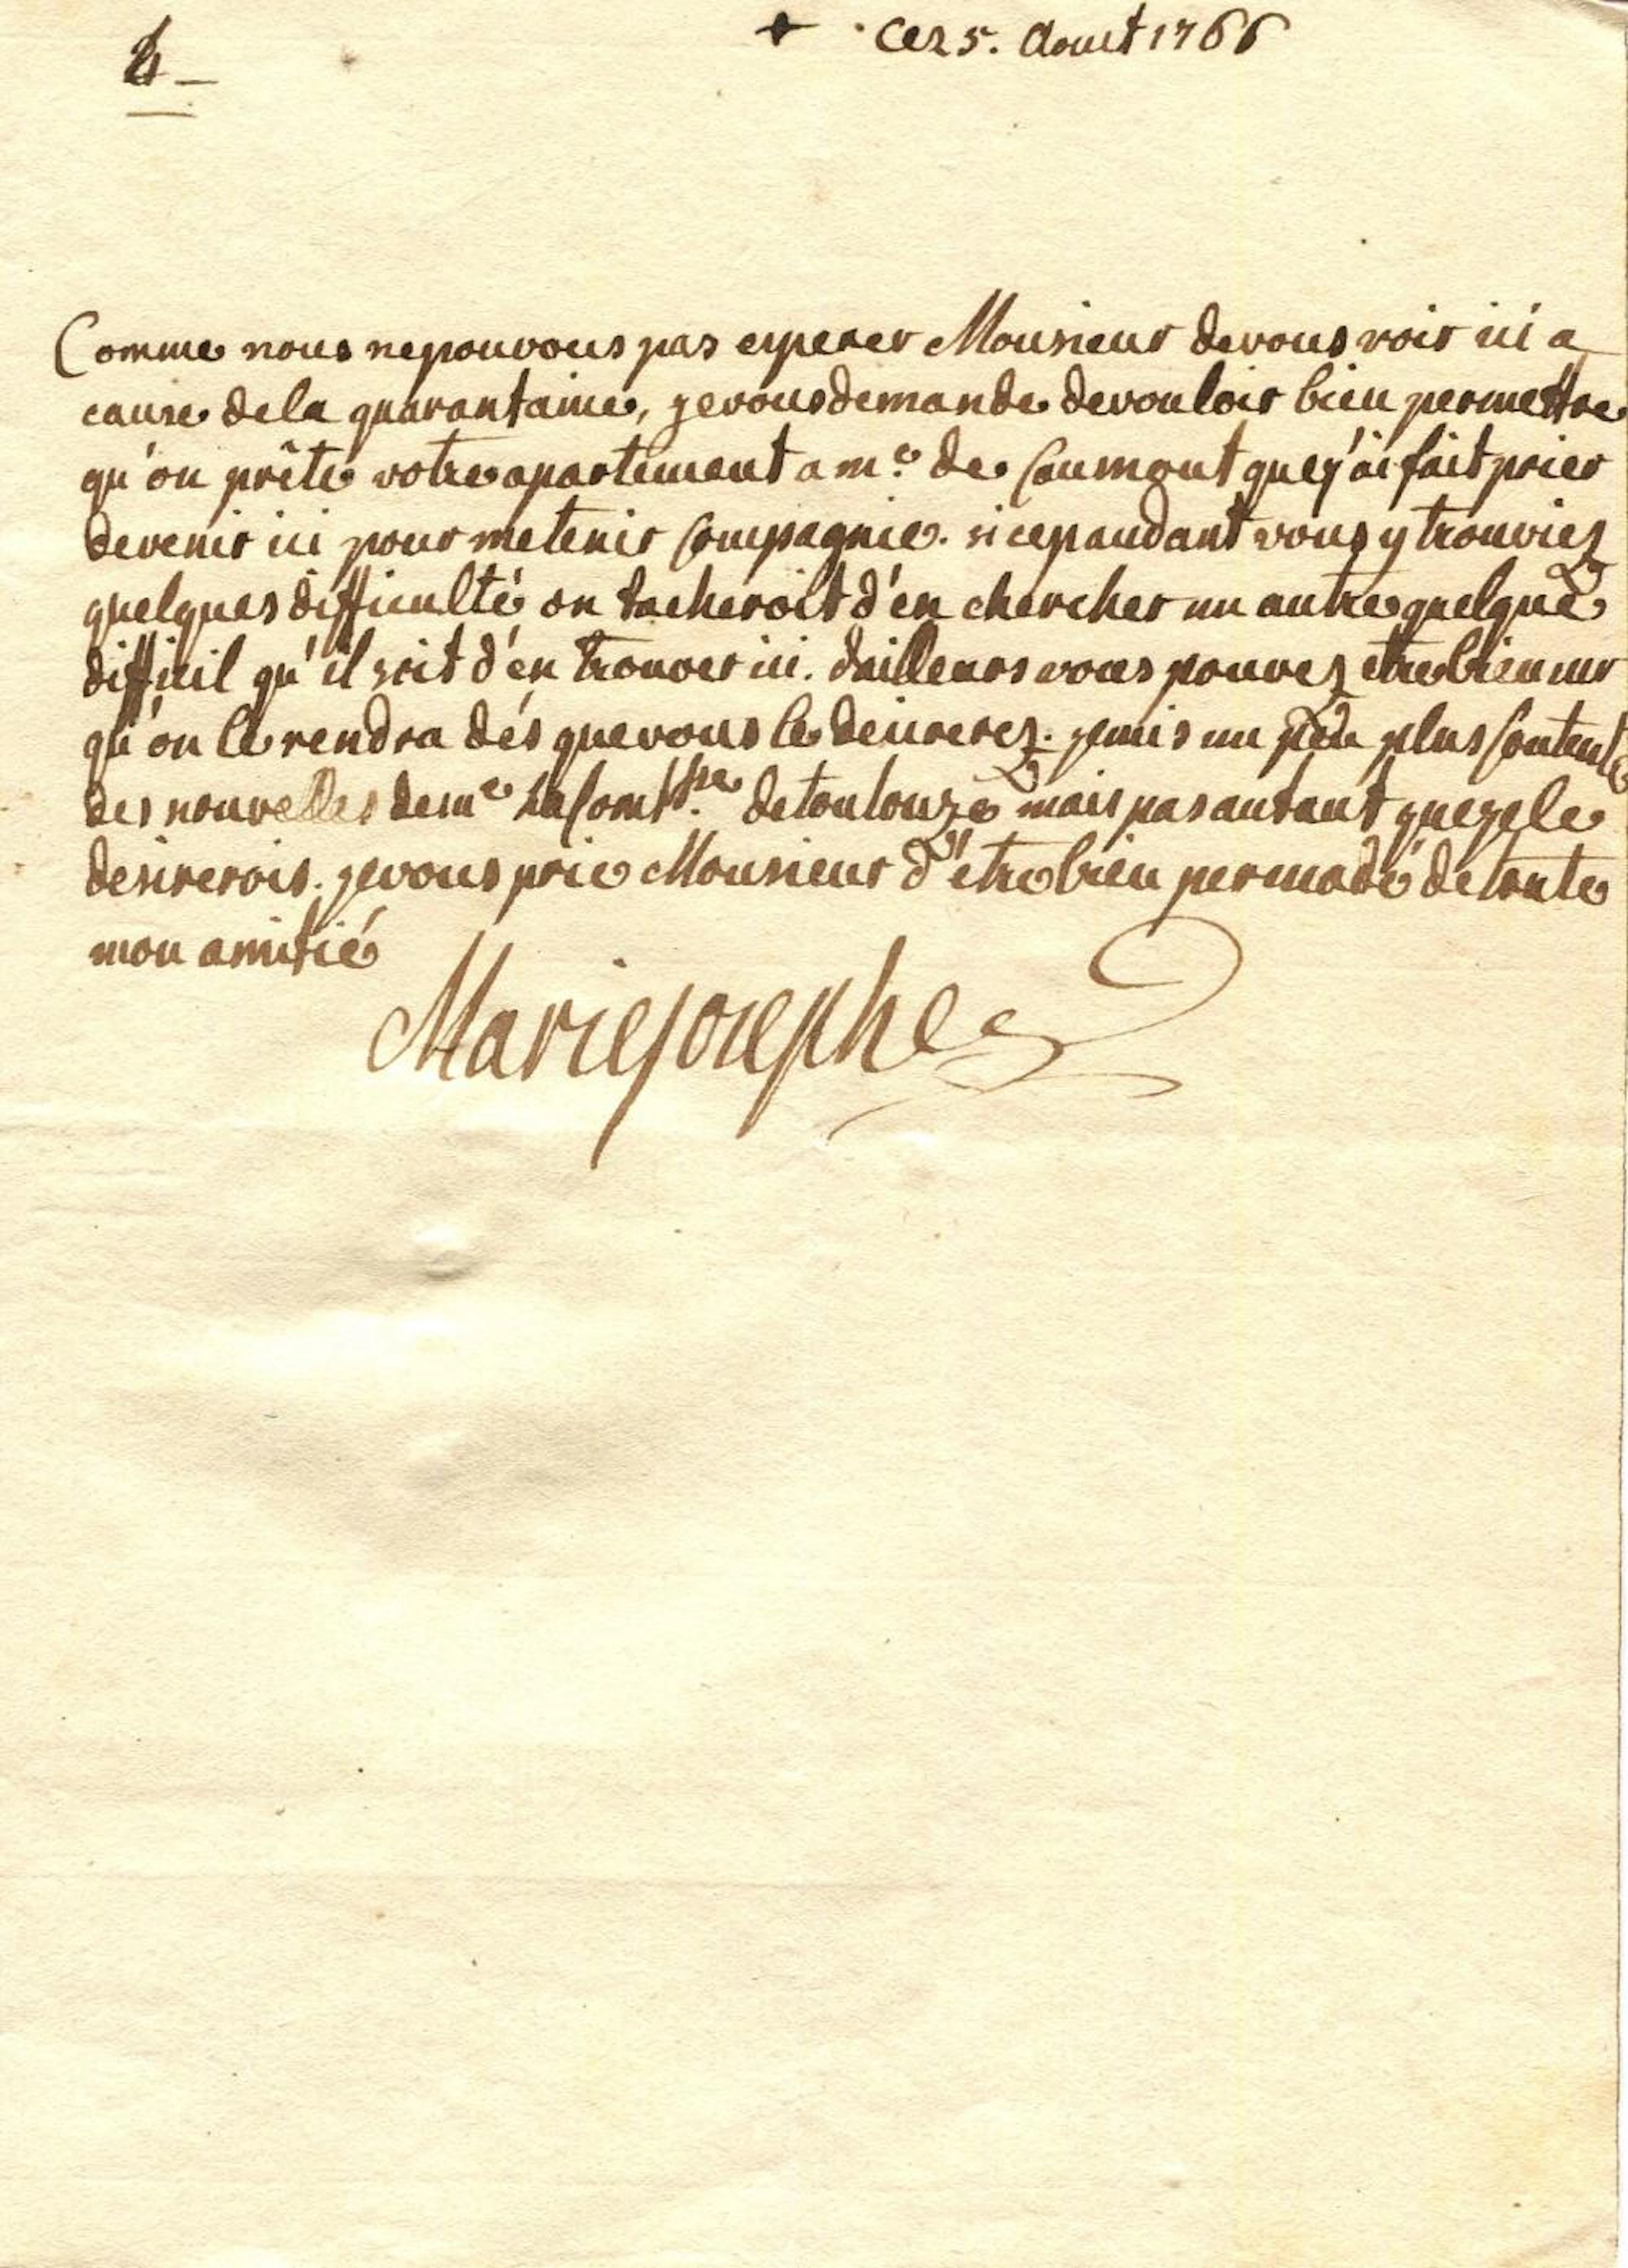 + ce 25. Aoust 1766
Comme nous ne pouvons pas esperer Monsieur de vous voir ici a
cause de la quarantaine, je vous demande de vouloir bien permettre
qu'on prête votre apartement a me. de Caumont que j'ai fait prier
de venir ici pour me tenir Compagnie. si cepandant vous y trouviez
quelques difficulté on tacheroit d'en chercher un autre quelque
difficil qu'il soit d'en trouver ici. dailleurs vous pouvez etre bien sur
qu'on le rendra dés que vous le desirerez. je suis un peu plus Contente
des nouvelles de me la Comtsse. de toulouze mais pas autant que je le
desirerois. je vous prie Monsieur d'être bien persuadé de toute
mon amitié
Marie josephe